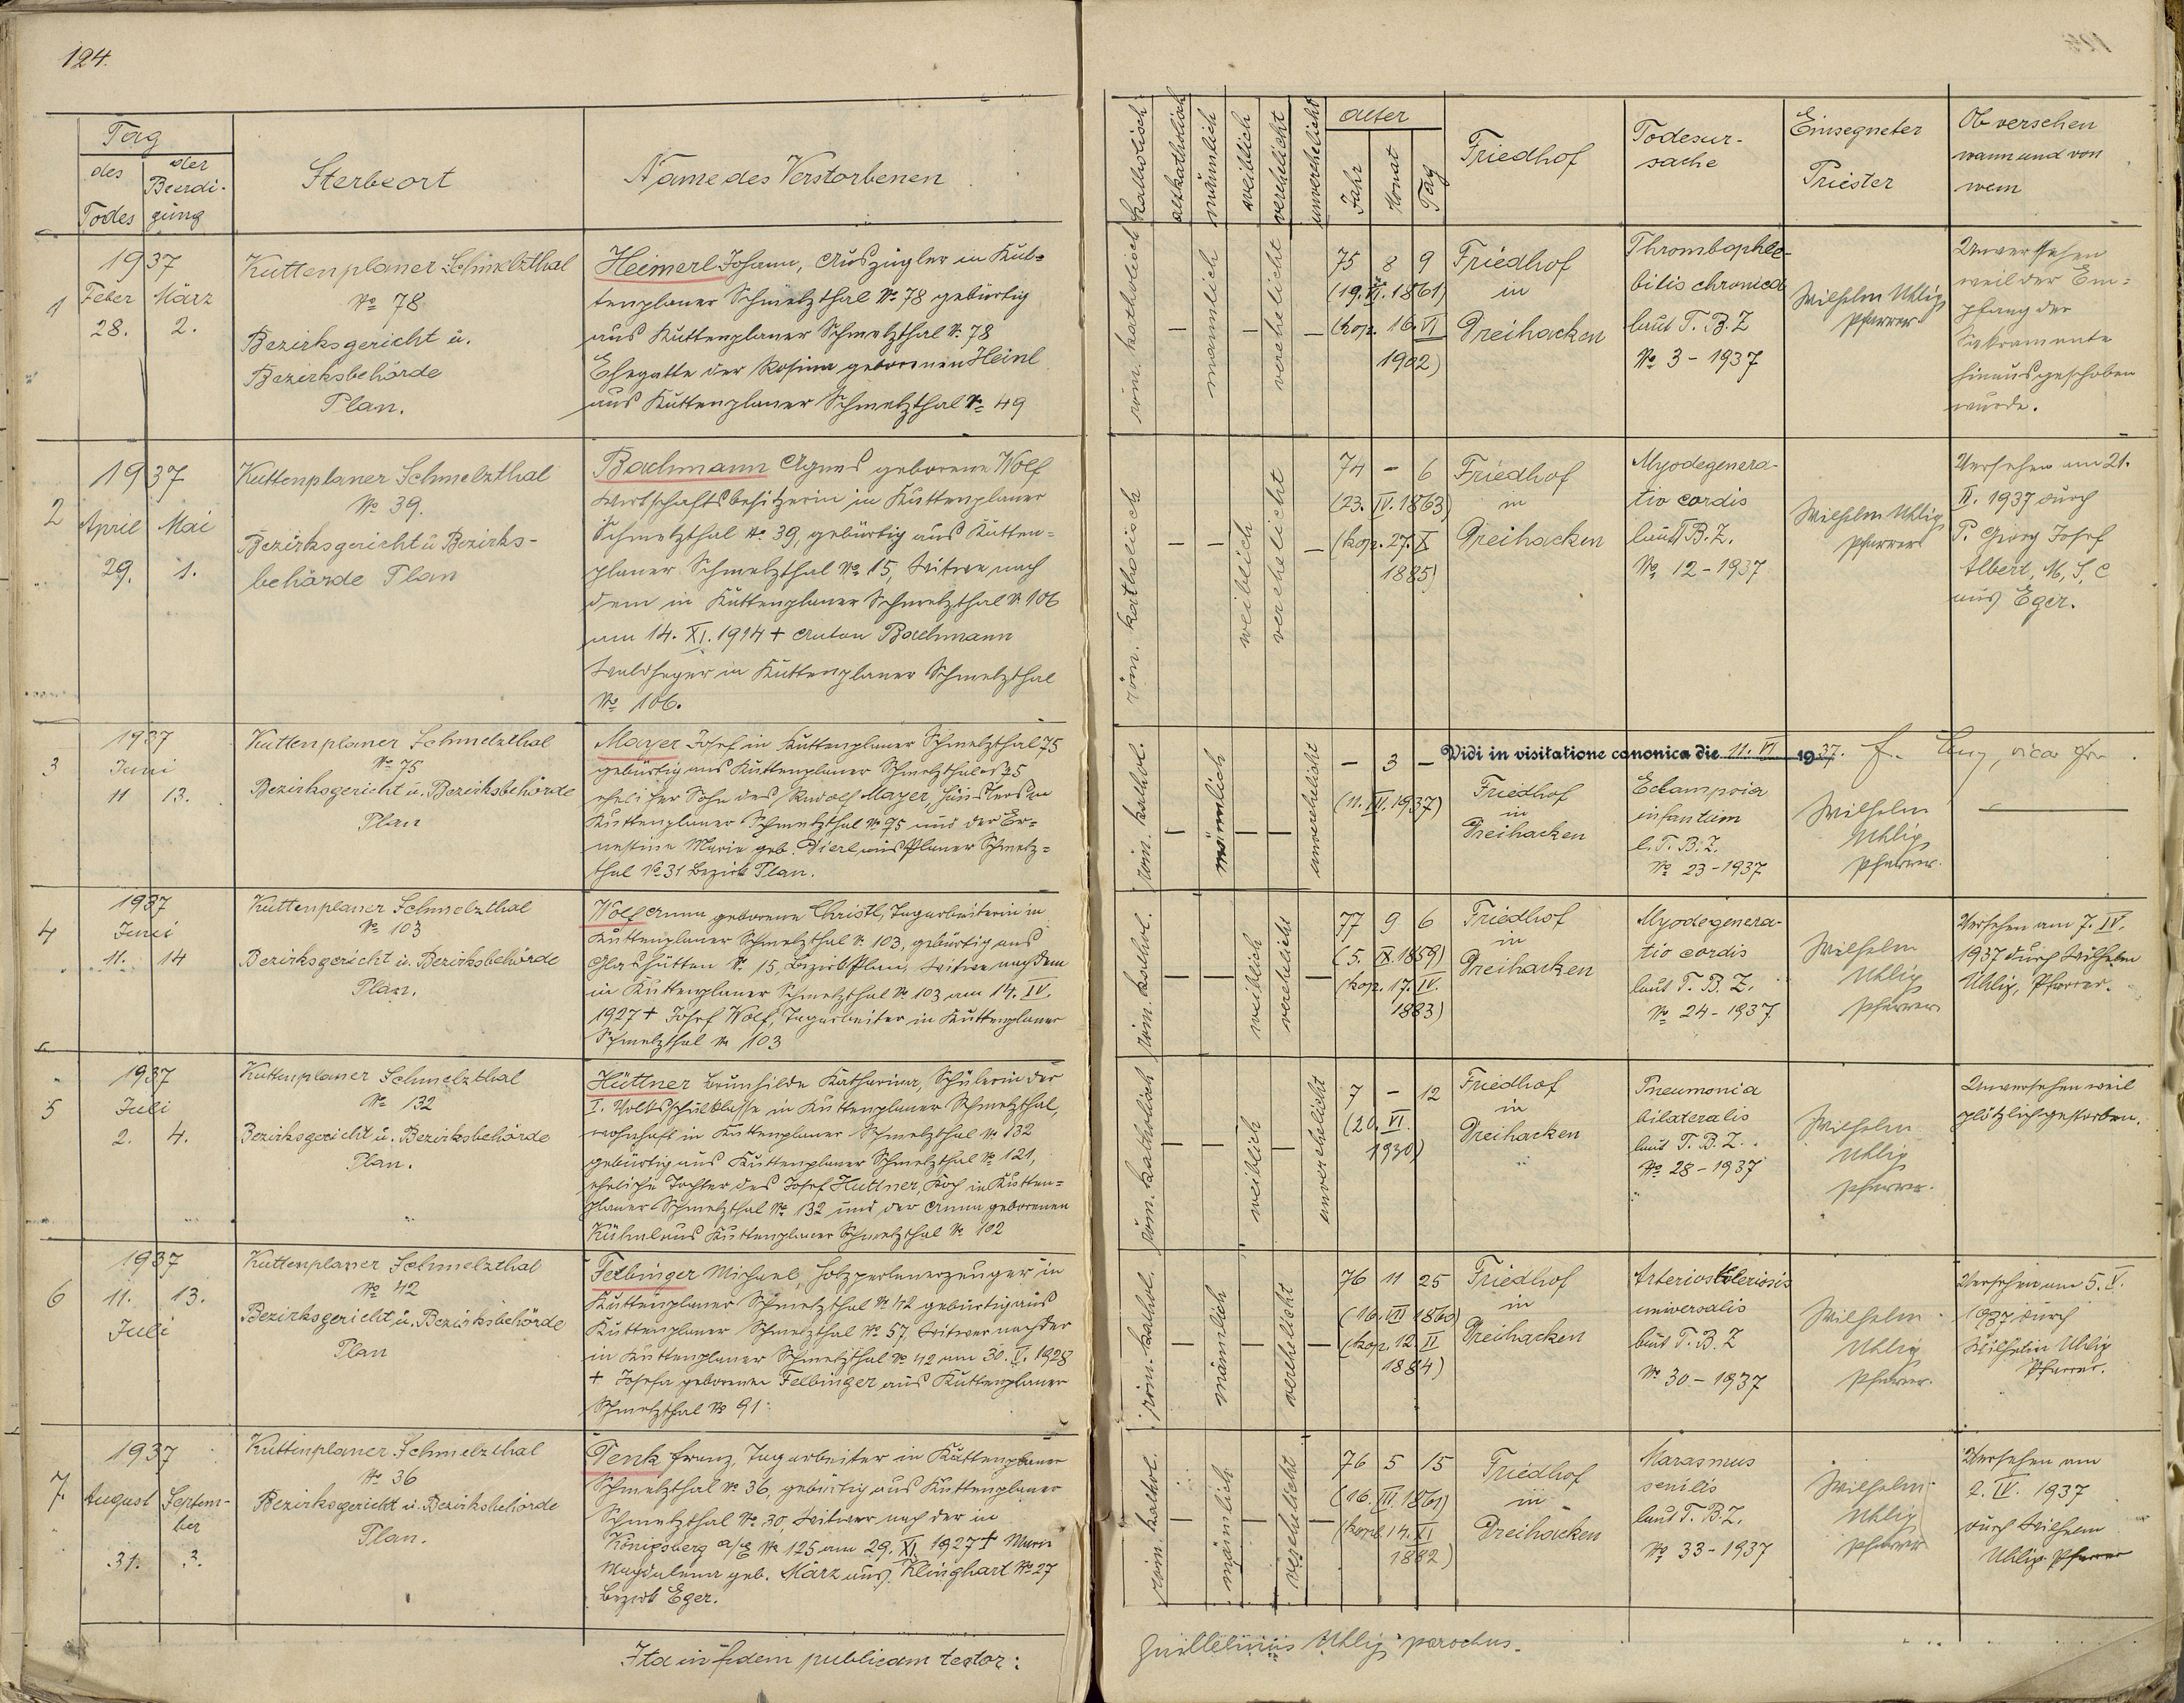 124.
Tag
des Todes
der Beerdi-
gung
Sterbeort
Name des Verstorbenen
katholisch
altkatholisch
männlich
weiblich
verehelicht
unverehelicht
Alter
Jahr
Monat
Tag
Friedhof
Todesur-
sache
Einsegneter
Priester
Ob versehen
wann und von
wem
1
1937
Feber März
28. 2.
Kuttenplaner Schmelzthal
№ 78
Bezirksgericht u.
Bezirksbehörde
Plan.
Heimerl Johann, Auszügler in Kut-
tenplaner Schmelzthal № 78 gebürtig
aus Kuttenplaner Schmelzthal № 78
Ehegatte der Rosina geborenen Heinl
aus Kuttenplaner Schmelzthal № 49
röm. katholisch
—
männlich
—
verehelicht
—
75 8 9
(19. VI. 1861)
(kop. 16. VI
1902)
Friedhof
in
Dreihacken
Thrombophle-
bitis chronica
laut T. B. Z
№ 3 - 1937
Wilhelm Uhlig
Pfarrer
Unversehen
weil der Em-
pfang der
Sakramente
hinausgeschoben
wurde.
2
1937
April Mai
29. 1.
Kuttenplaner Schmelzthal
№ 39.
Bezirksgericht u Bezirks-
behörde Plan
Bachmann Agnes geborene Wolf
Wirtschaftsbesitzerin in Kuttenplaner
Schmelzthal № 39, gebürtig aus Kutten-
planer Schmelzthal № 15, Witwe nach
dem in Kuttenplaner Schmelzthal № 106
am 14. XI. 1914 + Anton Bachmann
Waldheger in Kuttenplaner Schmelzthal
№ 106.
röm. katholisch
—
—
weiblich
verehelicht
—
74 - 6
(23. IV. 1863)
(kop. 27. X
1885)
Friedhof
in
Dreihacken
Myodegenera-
tio cordis
laut T. B. Z.
№ 12 - 1937
Wilhelm Uhlig
Pfarrer
Versehen am 21.
II. 1937 durch
P. Georg Josef
Albert, M, S, C
aus Eger.
3
1937
Juni
11 13.
Kuttenplaner Schmelzthal
№ 75
Bezirksgericht u. Bezirksbehörde
Plan
Mayer Josef in Kuttenplaner Schmelzthal 75
gebürtig aus Kuttenplaner Schmelzthal № 75
ehelicher Sohn des Rudolf Mayer, Häuslers in
Kuttenplaner Schmelzthal № 75 und der Er-
nestine Marie geb. Dierl aus Planer Schmelz-
thal № 31 Bezirk Plan.
röm. kathol.
—
männlich
—
—
unverehelicht
- 3 -
(11. III. 1937)
Vidi in visitatione canonica die 11. VI 1937.
Friedhof
in
Dreihacken
Eclampsia
infantium
l. T. B. Z.
№ 23 - 1937
Wilhelm
Uhlig
Pfarrer.
—
4
1937
Juni
11. 14
Kuttenplaner Schmelzthal
№ 103
Bezirksgericht u. Bezirksbehörde
Plan.
Wolf Anna geborene Christl, Tagarbeiterin in
Kuttenplaner Schmelzthal № 103, gebürtig aus
Glashütten № 15, Bezirk Plan, Witwe nach dem
in Kuttenplaner Schmelzthal № 103 am 14. IV.
1927 + Josef Wolf, Tagarbeiter in Kuttenplaner
Schmelzthal № 103
röm. kathol.
—
—
weiblich
verehelicht
—
77 9 6
(5. IX. 1859)
(kop. 17. IV.
1883)
Friedhof
in
Dreihacken
Myodegenera-
tio cordis
laut T. B. Z.
№ 24 - 1937
Wilhelm
Uhlig
Pfarrer
Versehen am 7. IV.
1937 durch Wilhelm
Uhlig, Pfarrer.
5
1937
Juli
2. 4.
Kuttenplaner Schmelzthal
№ 132
Bezirksgericht u. Bezirksbehörde
Plan.
Hüttner Brunhilde Katharina, Schülerin der
I. Volksschulklasse in Kuttenplaner Schmelzthal,
wohnhaft in Kuttenplaner Schmelzthal № 132
gebürtig aus Kuttenplaner Schmelzthal № 121,
eheliche Tochter des Josef Hüttner, Koch in Kutten-
planer Schmelzthal № 132 und der Anna geborenen
Kühnl aus Kuttenplaner Schmelzthal № 102
röm. katholisch
—
—
weiblich
—
unverehelicht
7 - 12
(20. VI.
1930)
Friedhof
in
Dreihacken
Pneumonia
bilateralis
laut T. B. Z.
№ 28 - 1937
Wilhelm
Uhlig
Pfarrer.
Unversehen weil
plötzlich gestorben.
6
1937
11. 13.
Juli
Kuttenplaner Schmelzthal
№ 42
Bezirksgericht u. Bezirksbehörde
Plan
Felbinger Michael, Holzperlenerzeuger in
Kuttenplaner Schmelzthal № 42 gebürtig aus
Kuttenplaner Schmelzthal № 57, Witwer nach der
in Kuttenplaner Schmelzthal № 42 am 30. V. 1928
+ Josefa geborenen Felbinger aus Kuttenplaner
Schmelzthal № 91.
röm. kathol.
—
männlich
—
verehelicht
—
76 11 25
(16. VII 1860)
(kop. 12. II
1884)
Friedhof
in
Dreihacken
Arteriosklerosis
universalis
laut T. B. Z
№ 30 - 1937
Wilhelm
Uhlig
Pfarrer.
Versehen am 5. V.
1937 durch
Wilhelm Uhlig
Pfarrer.
7.
1937
August Septem-
ber
31. 2.
Kuttenplaner Schmelzthal
№ 36
Bezirksgericht u. Bezirksbehörde
Plan.
Penk Franz, Tagarbeiter in Kuttenplaner
Schmelzthal № 36, gebürtig aus Kuttenplaner
Schmelzthal № 30, Witwer nach der in
Königsberg a/E № 125 am 29. XI. 1927 + Marie
Magdalena geb. März aus Klinghart № 27
Bezirk Eger.
röm. kathol.
—
männlich
—
verehelicht
—
76 5 15
(16. III. 1861)
(kopl. 14. XI
1882)
Friedhof
in
Dreihacken
Marasmus
senilis
laut T. B. Z.
№ 33 - 1937
Wilhelm
Uhlig
Pfarrer
Versehen am
2. IV. 1937
durch Wilhelm
Uhlig Pfarrer
Ita in fidem publicam testor:
Guillelmus Uhlig parochus.